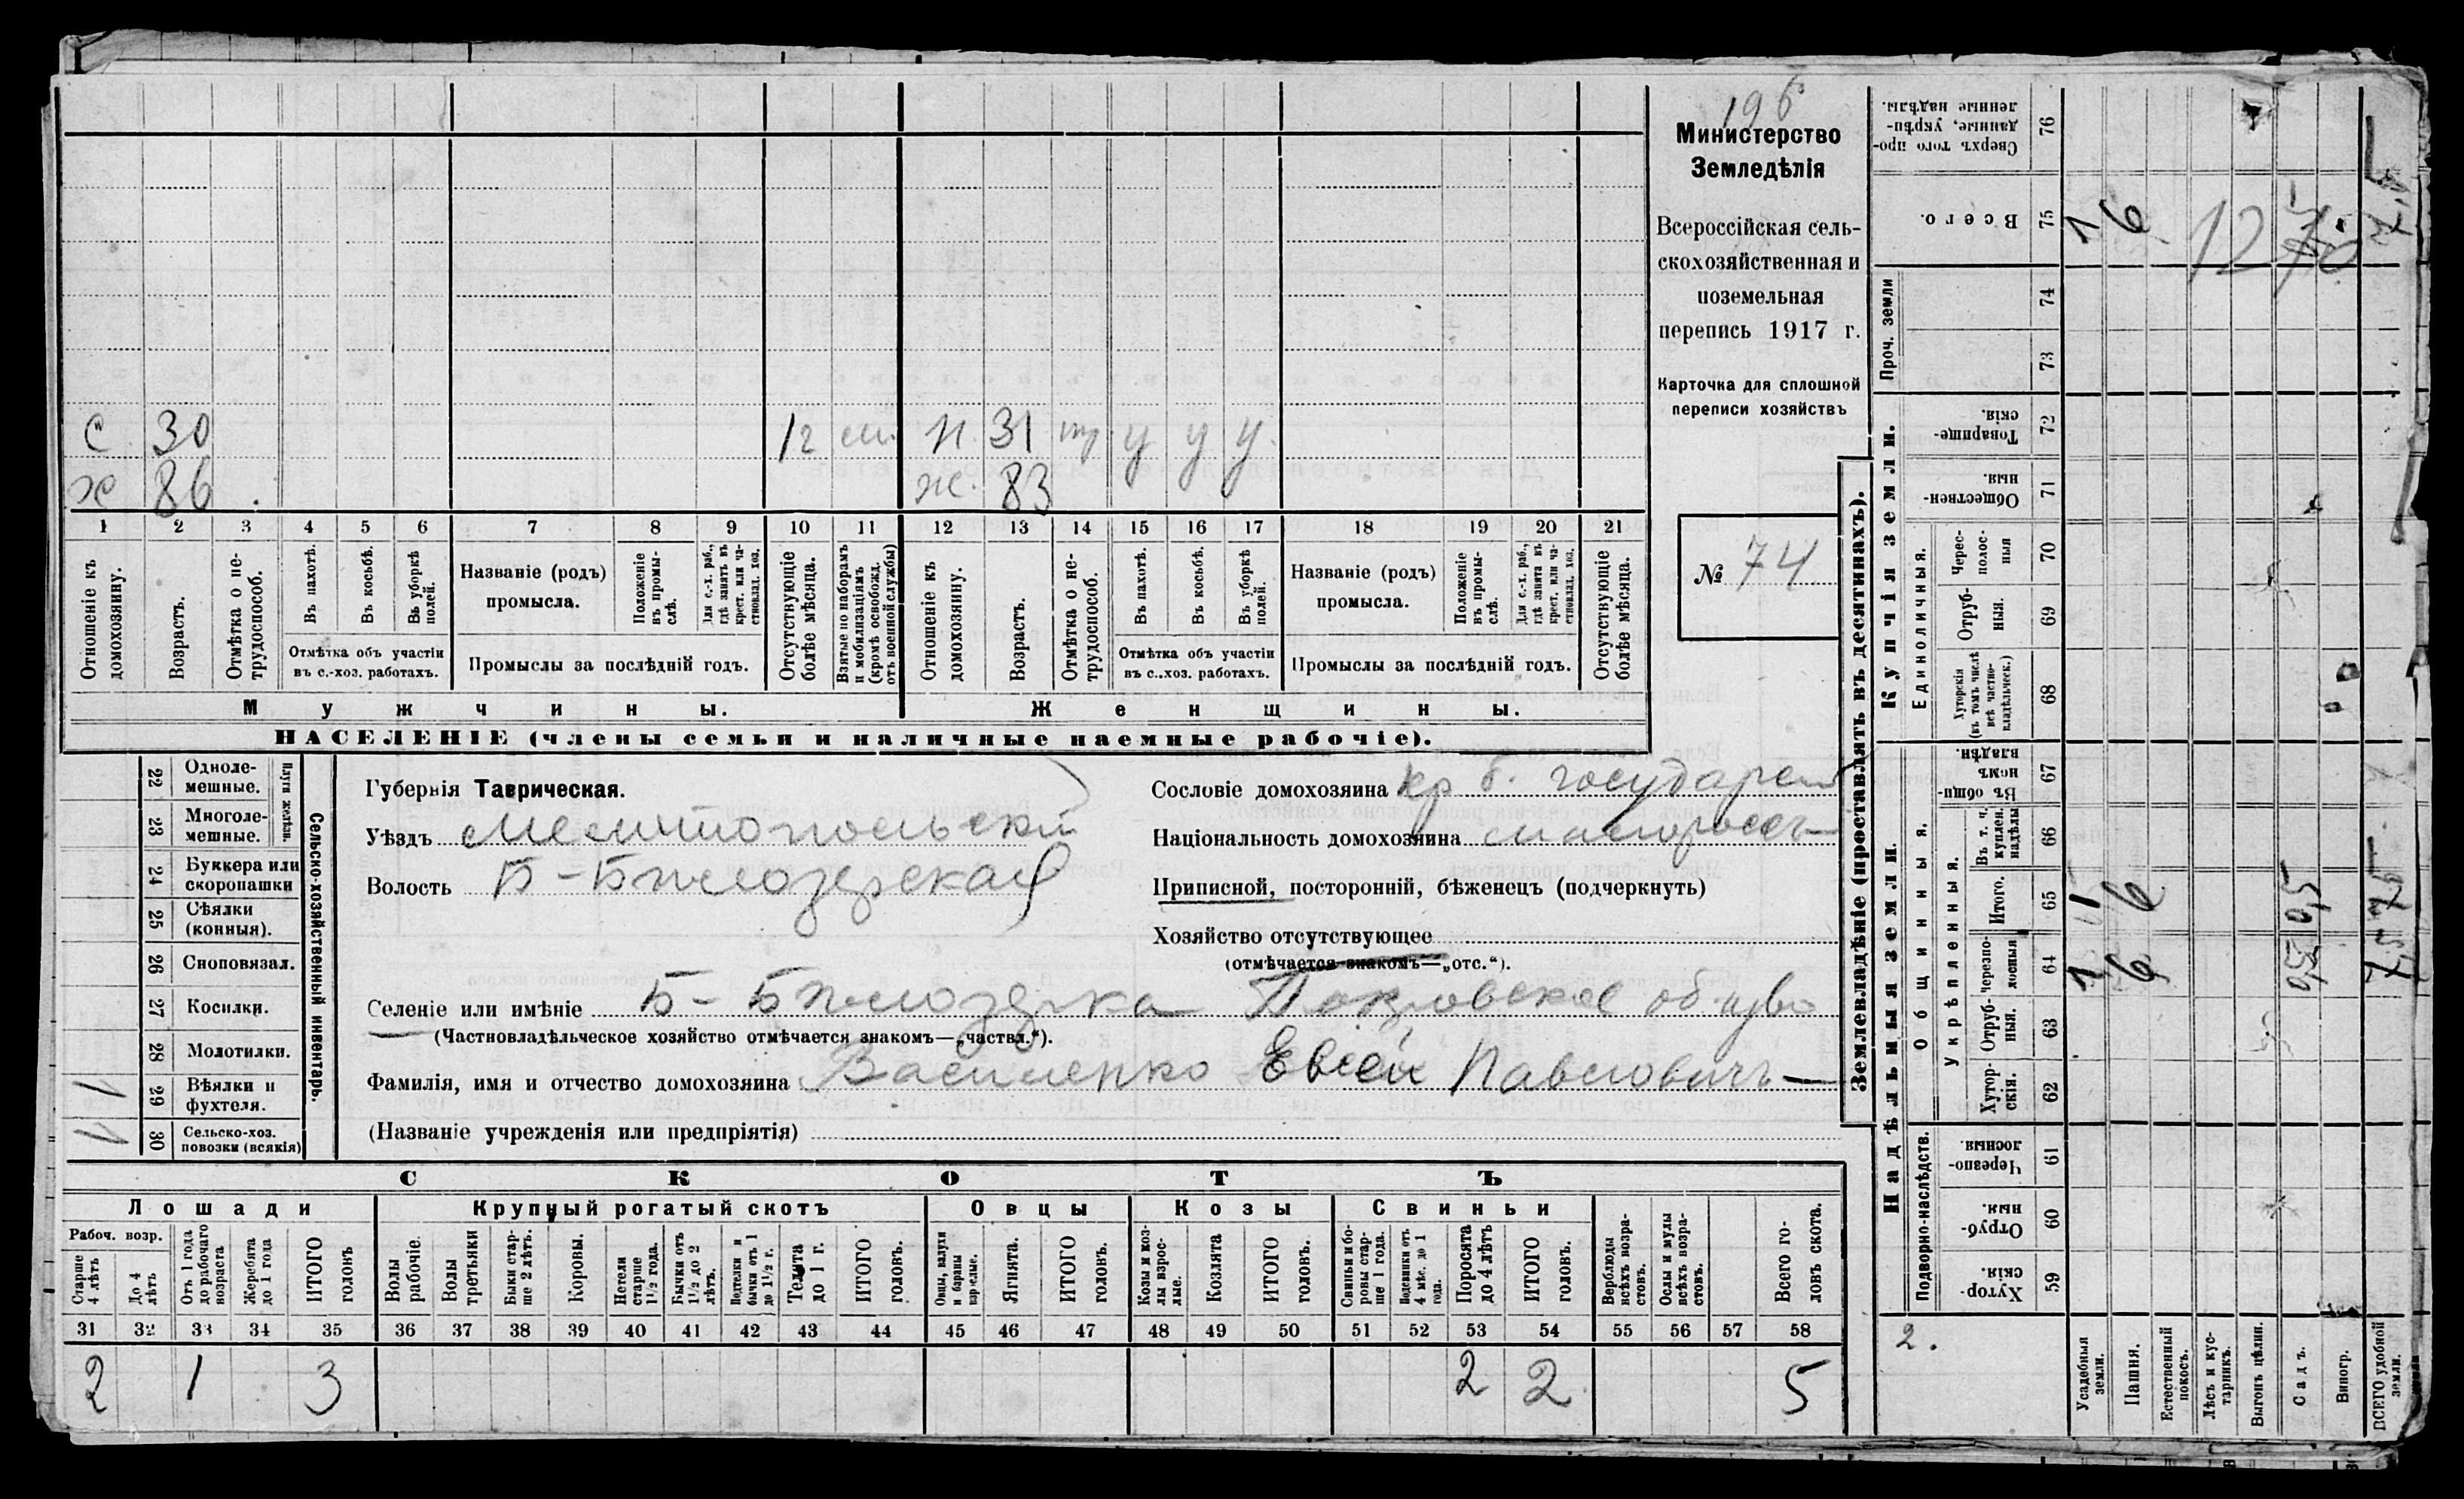 196
Министерство
Земледѣлія
Всероссійская сель-
скохозяйственная и
поземельная
перепись 1917 г.
Карточка для сплошной
переписи хозяйствъ
№ 74
с 30 12 Н 31 тр у у у
х 86 ж. 83
1 2 3 4 5 6 7 8 9 10 11 12 13 14 15 16 17 18 19 20 21
Отношеніе къ домохозяину.
Возрастъ.
Отмѣтка о не-трудоспособ.
Въ пахотѣ.
Въ косьбѣ.
Въ уборкѣ полей.
Отмѣтка объ участіи
въ с.-хоз. работахъ.
Названіе (родъ)
промысла.
Положеніе въ промы-слѣ.
Для с.-х. раб., гдѣ занятъ въ крест. или ча-стновлад. хоз.
Промыслы за послѣдній годъ.
Отсутствующіе болѣе мѣсяца.
Взятые по наборамъ и мобилизаціямъ (кромѣ освобожд. отъ военной службы)
Отношеніе къ домохозяину.
Возрастъ.
Отмѣтка о не-трудоспособ.
Въ пахотѣ.
Въ косьбѣ.
Въ уборкѣ полей.
Отмѣтка объ участіи
въ с..хоз. работахъ.
Названіе (родъ)
промысла.
Положеніе въ промы-слѣ.
Для с.-х. раб., гдѣ занята въ крест. или ча-стновлад. хоз.
Промыслы за послѣдній годъ.
Отсутствующіе болѣе мѣсяца.
Мужчины.
Женщины.
НАСЕЛЕНІЕ (члены семьи и наличные наемные рабочіе).
Сельско-хозяйственный инвентарь.
22 Одноле-мешные.
23 Многоле-мешные.
24 Буккера или скоропашки
25 Сѣялки (конныя).
26 Сноповязал.
27 Косилки.
28 Молотилки.
1 29 Вѣялки и фухтеля.
1 30 Сельско-хоз. повозки (всякія)
Губернія Таврическая.
Уѣздъ Мелитопольскій
Волость Б-Бѣлозерская
Сословіе домохозяина кр б. государст
Національность домохозяина малороссъ
Приписной, посторонній, бѣженецъ (подчеркнуть)
Хозяйство отсутствующее
(отмѣчается знакомъ—„отс.“).
Селеніе или имѣніе Б-Бѣлозерка Покровское общво
(Частновладѣльческое хозяйство отмѣчается знакомъ—„частвл.“).
Фамилія, имя и отчество домохозяина Василенко Евсей Павловичъ
(Названіе учрежденія или предпріятія)
СКОТЪ
Лошади Крупный рогатый скотъ Овцы Козы Свиньи
Рабоч. возр.
Старше 4 лѣтъ
До 4 лѣтъ
Отъ 1 года до рабочаго возраста
Жеребята до 1 года
ИТОГО головъ
Волы рабочіе.
Волы третьяки
Быки стар-ше 2 лѣтъ.
Коровы.
Нетели старше 1½ года.
Бычки отъ 1½ до 2 лѣтъ.
Подтелки и бычки отъ 1 до 1½ г.
Телята до 1 г.
ИТОГО головъ.
Овцы, валухи и бараны взрослые.
Ягнята.
ИТОГО головъ.
Козы и коз-лы взрос-лые.
Козлята
ИТОГО головъ.
Свиньи и бо-ровы стар-ше 1 года.
Подсвинки отъ 4 мѣс. до 1 года.
Поросята до 4 лѣтъ
ИТОГО головъ.
Верблюды всѣхъ возра-стовъ.
Ослы и мулы всѣхъ возра-стовъ.
Всего го-ловъ скота.
31 32 33 34 35 36 37 38 39 40 41 42 43 44 45 46 47 48 49 50 51 52 53 54 55 56 57 58
2 1 3 2 2 5
Землевладѣніе (проставлять въ десятинахъ).
Купчія земли.
Надѣльныя земли.
Сверхъ того про-данные, укрѣп-ленные надѣлы. 76
Всего. 75 1 6 12
Проч. земли
74
73
Товарище-скія. 72
Обществен-ныя 71
Единоличныя.
Черес-полос-ныя 70
Отруб-ныя. 69
Хуторскія (въ томъ числѣ всѣ частно-владѣльческ.) 68
Общинныя.
Въ общи-номъ владѣн. 67
Укрѣпленныя.
Въ т. ч. куплен. надѣлы 66
Итого. 65 1 6 0,5
Черезпо-лосныя 64 1 6
Отруб-ныя. 63
Хутор-скія. 62
Подворно-наслѣдств.
Черезпо-лосныя 61
Отруб-ныя. 60
Хутор-скія. 59
2.
Усадебныя земли.
Пашня.
Естественный покосъ.
Лѣсъ и кус-тарникъ.
Выгонъ цѣлин.
Садъ.
Виногр.
ВСЕГО удобной земли.